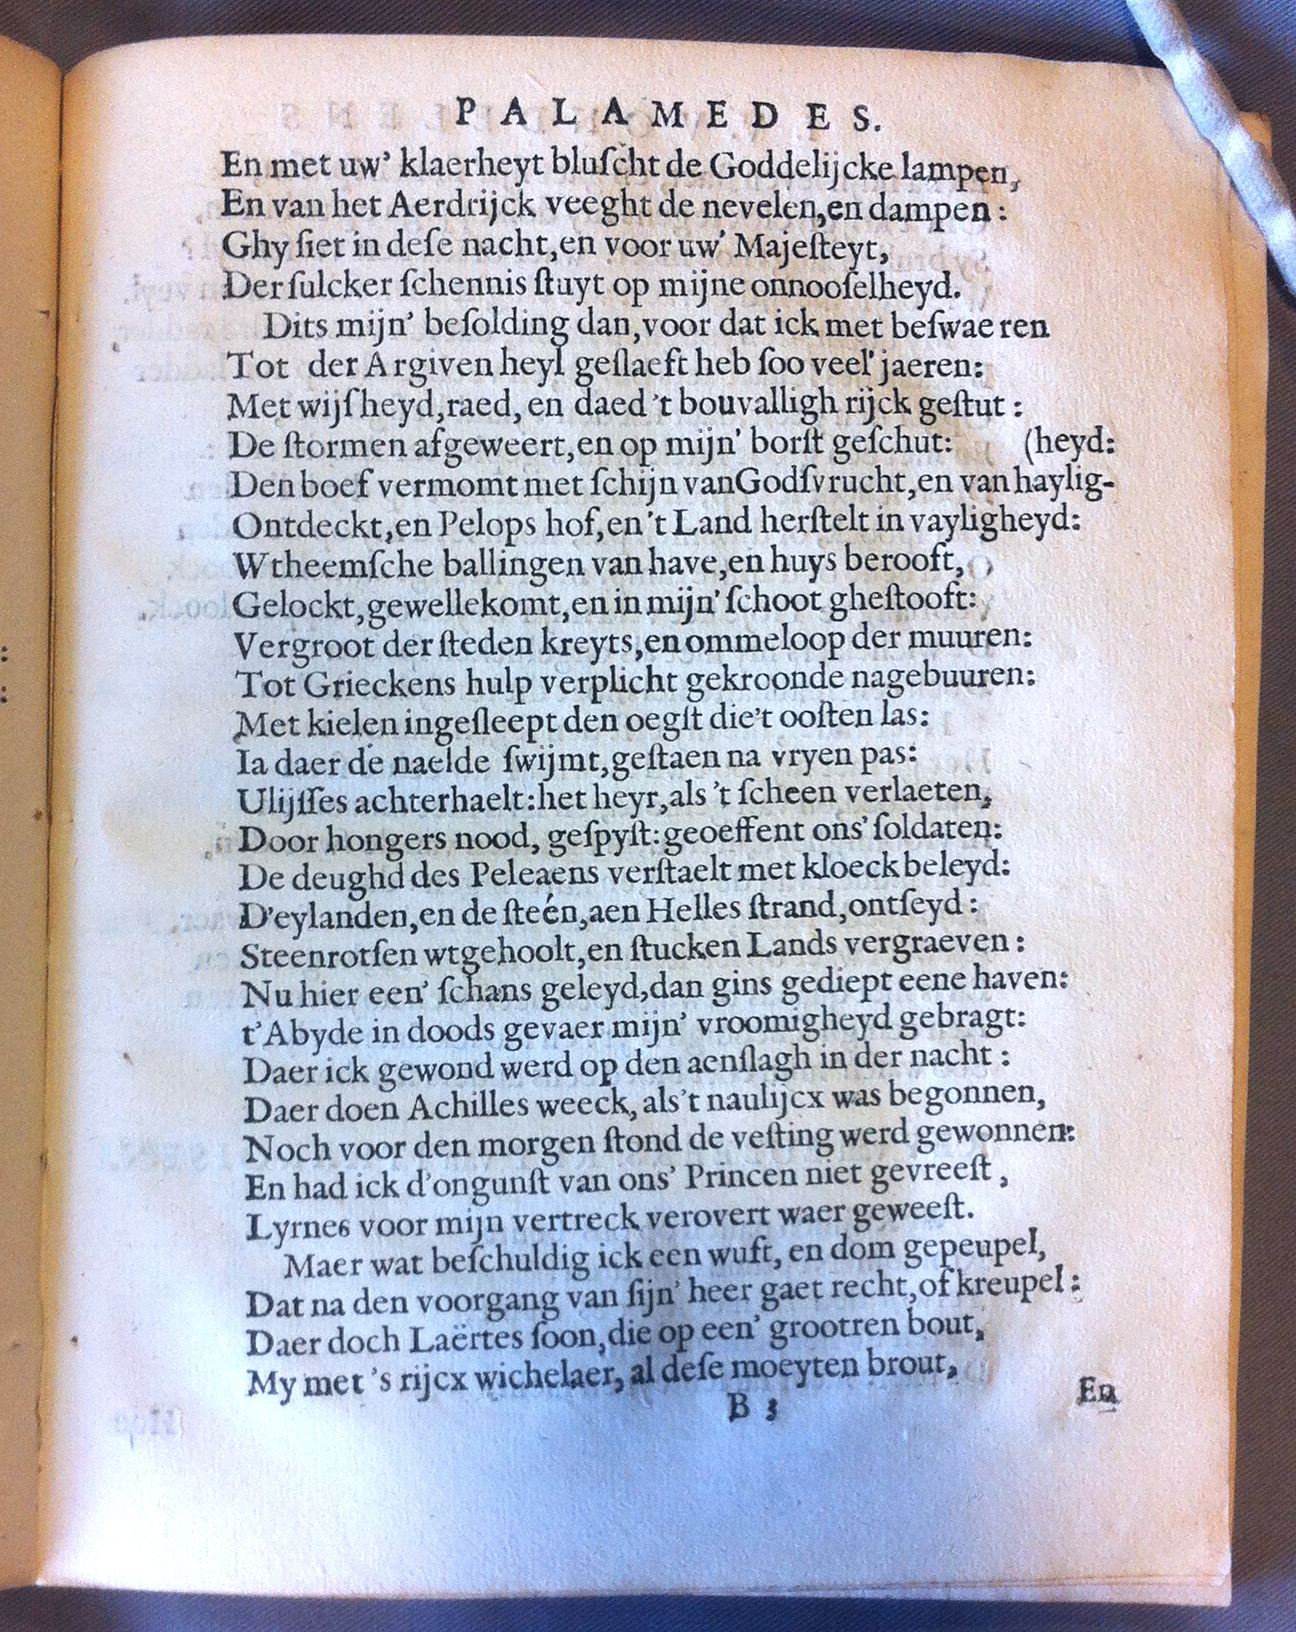 PALAMEDES.
En met uw' klaerheyt bluſcht de Goddelijcke lampen,
En van het Aerdrijck veeght de nevelen, en dampen:
Ghy ſiet in deſe nacht, en voor uw' Majeſteyt,
Der ſulcker ſchennis ſtuyt op mijne onnooſelheyd.
Dits mijn' beſolding dan, voor dat ick met beſwaeren
Tot der Argiven heyl geſlaeft heb ſoo veel' jaeren:
Met wijſheyd, raed, en daed 't bouvalligh rijck geſtut:
De ſtormen afgeweert, en op mijn' borſt geſchut: (heyd:
Den boef vermomt met ſchijn van Godſvrucht, en van haylig-
Ontdeckt, en Pelops hof, en 't Land herſtelt in vayligheyd:
Wtheemſche ballingen van have, en huys berooft,
Gelockt, gewellekomt, en in mijn' ſchoot gheſtooft:
Vergroot der ſteden kreyts, en ommeloop der muuren:
Tot Grieckens hulp verplicht gekroonde nagebuuren:
Met kielen ingeſleept den oegſt die't ooſten las:
Ia daer de naelde ſwijmt, geſtaen na vryen pas:
Ulijſſes achterhaelt: het heyr, als 't ſcheen verlaeten,
Door hongers nood, geſpyſt: geoeffent ons' ſoldaten:
De deughd des Peleaens verſtaelt met kloeck beleyd:
D'eylanden, en de ſteén, aen Helles ſtrand, ontſeyd:
Steenrotſen wtgehoolt, en ſtucken Lands vergraeven:
Nu hier een' ſchans geleyd, dan gins gediept eene haven:
t'Abyde in doods gevaer mijn' vroomigheyd gebragt:
Daer ick gewond werd op den aenſlagh in der nacht:
Daer doen Achilles weeck, als't naulijcx was begonnen,
Noch voor den morgen ſtond de veſting werd gewonnen:
En had ick d'ongunſt van ons' Princen niet gevreeſt,
Lyrnes voor mijn vertreck verovert waer geweeſt.
Maer wat beſchuldig ick een wuft, en dom gepeupel,
Dat na den voorgang van ſijn' heer gaet recht, of kreupel:
Daer doch Laërtes ſoon, die op een' grootren bout,
My met 's rijcx wichelaer, al deſe moeyten brout,
B 3
En